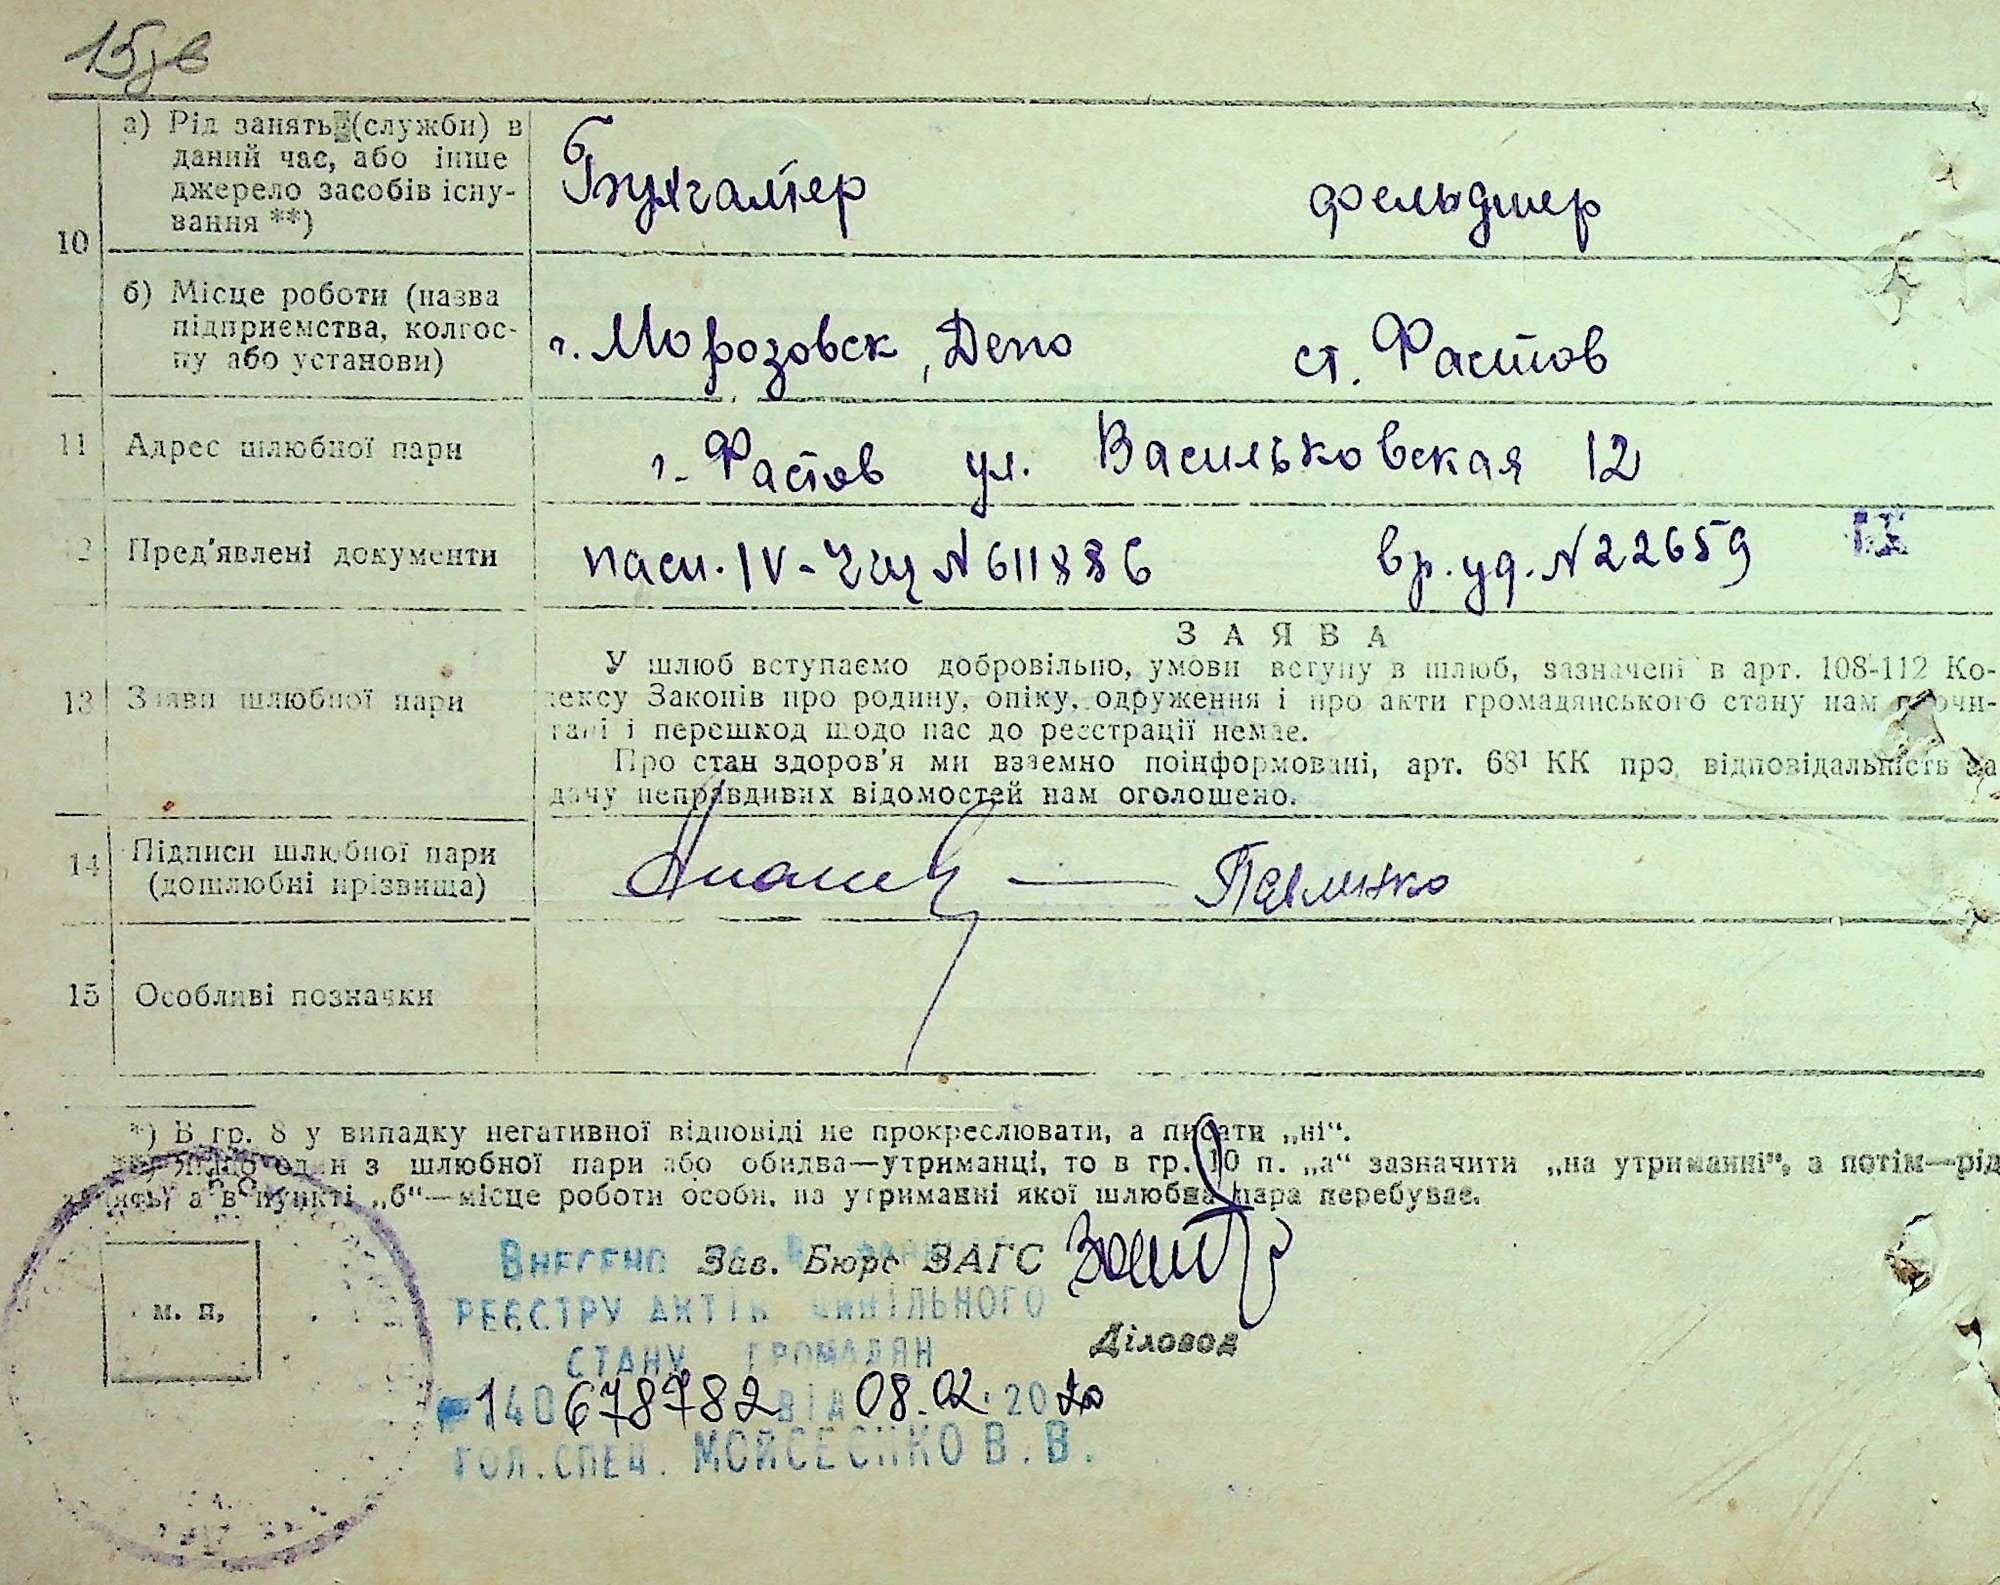 15
а) Рід занять (служби) в
даний час, або інше
джерело засобів існу-
вання **)
Бухгалтер фельдшер
10
б) Місце роботи (назва
підприємства, колгос-
пу або установи)
г. Морозовск, Депо ст. Фастов
11 Адрес шлюбної пари г. Фастов ул. Васильковская 12
12 Пред'явлені документи пасп. IV- № 611886 вр. уд. № 22659
ЗАЯВА
У шлюб вступаємо добровільно, умови вступу в шлюб, зазначені в арт. 108-112 Ко-
13 Заяви шлюбної пари дексу Законів про родину, опіку, одруження і про акти громадянського стану нам прочи-
тані і перешкод щодо нас до реєстрації немає.
Про стан здоров'я ми взаємно поінформовані, арт. 68¹ КК про відповідальність за
дачу неправдивих відомостей нам оголошено.
14 Підписи шлюбної пари
(дошлюбні прізвища)
Павленко
15 Особливі позначки
*) В гр. 8 у випадку негативної відповіді не прокреслювати, а писати „ні“.
**) Якщо один з шлюбної пари або обидва—утриманці, то в гр. 10 п. „а“ зазначити „на утриманні“, а потім—рід
занять, а в пункті „б“—місце роботи особи, на утриманні якої шлюбна пара перебуває.
Внесено Зав. Бюро ЗАГС
м. п.
РЕЄСТРУ АКТІВ ЦИВІЛЬНОГО
Діловод
СТАНУ ГРОМАДЯН
140678782 від 08.02.2020
ГОЛ. СПЕЦ. МОЙСЕЄНКО В. В.